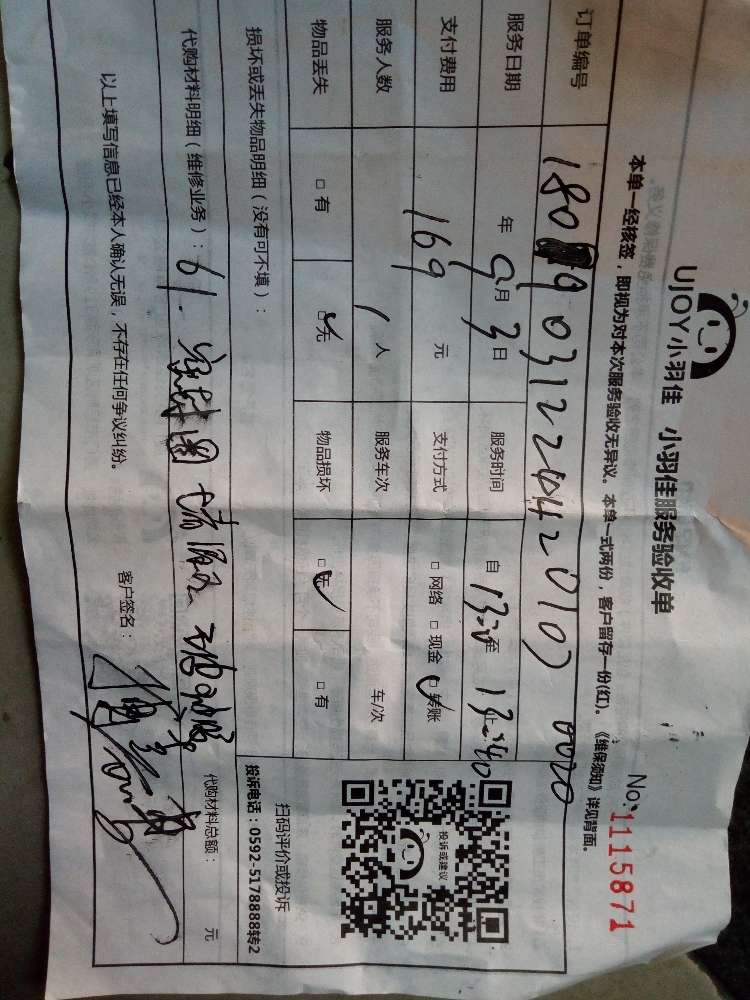 UJOY小羽佳 小羽佳服务验收单
No:1115871
本单一经核签，即视为对本次服务验收无异议。本单一式两份，客户留存一份(红)。《维保须知》详见背面。
订单编号
服务日期 年 9月 3日 服务时间 自 13:00 至 13:40 止
支付费用 169 元 支付方式 □网络 □现金 □✓转账
服务人数 1 人 服务车次 车/次
物品丢失 □有 □✓无 物品损坏 □✓无 □有
损坏或丢失物品明细（没有可不填）：
代购材料明细（维修业务）：
代购材料总额： 元
以上填写信息已经本人确认无误，不存在任何争议纠纷。
客户签名：
投诉或建议
扫码评价或投诉
投诉电话：0592-5178888转2